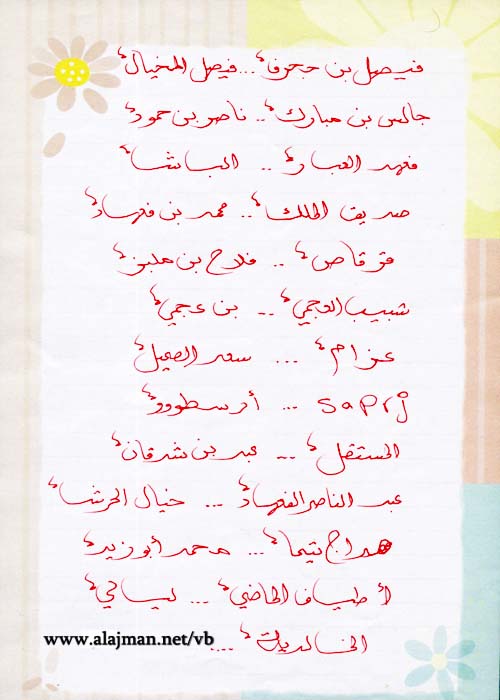 فيصل بن حجرف ... فيصل المخيال
جالس بن مبارك .. ناصر بن حمود
فهد العبار .. الباشا
صديق الملك .. محمد بن فهاد
قوقاص .. فلاح بن
شبيب العجمي .. بن عجمي
عزام ... سعد الصعيل
saprj ... أرسطووو
المستقل ... عبد بن شرقان
عبد الناصر الفهاد ... خيال الحرشا
هداج تيما ... محمد أبو زيد
أطياف الماضي ... ليالي
www.alajman.net/vb